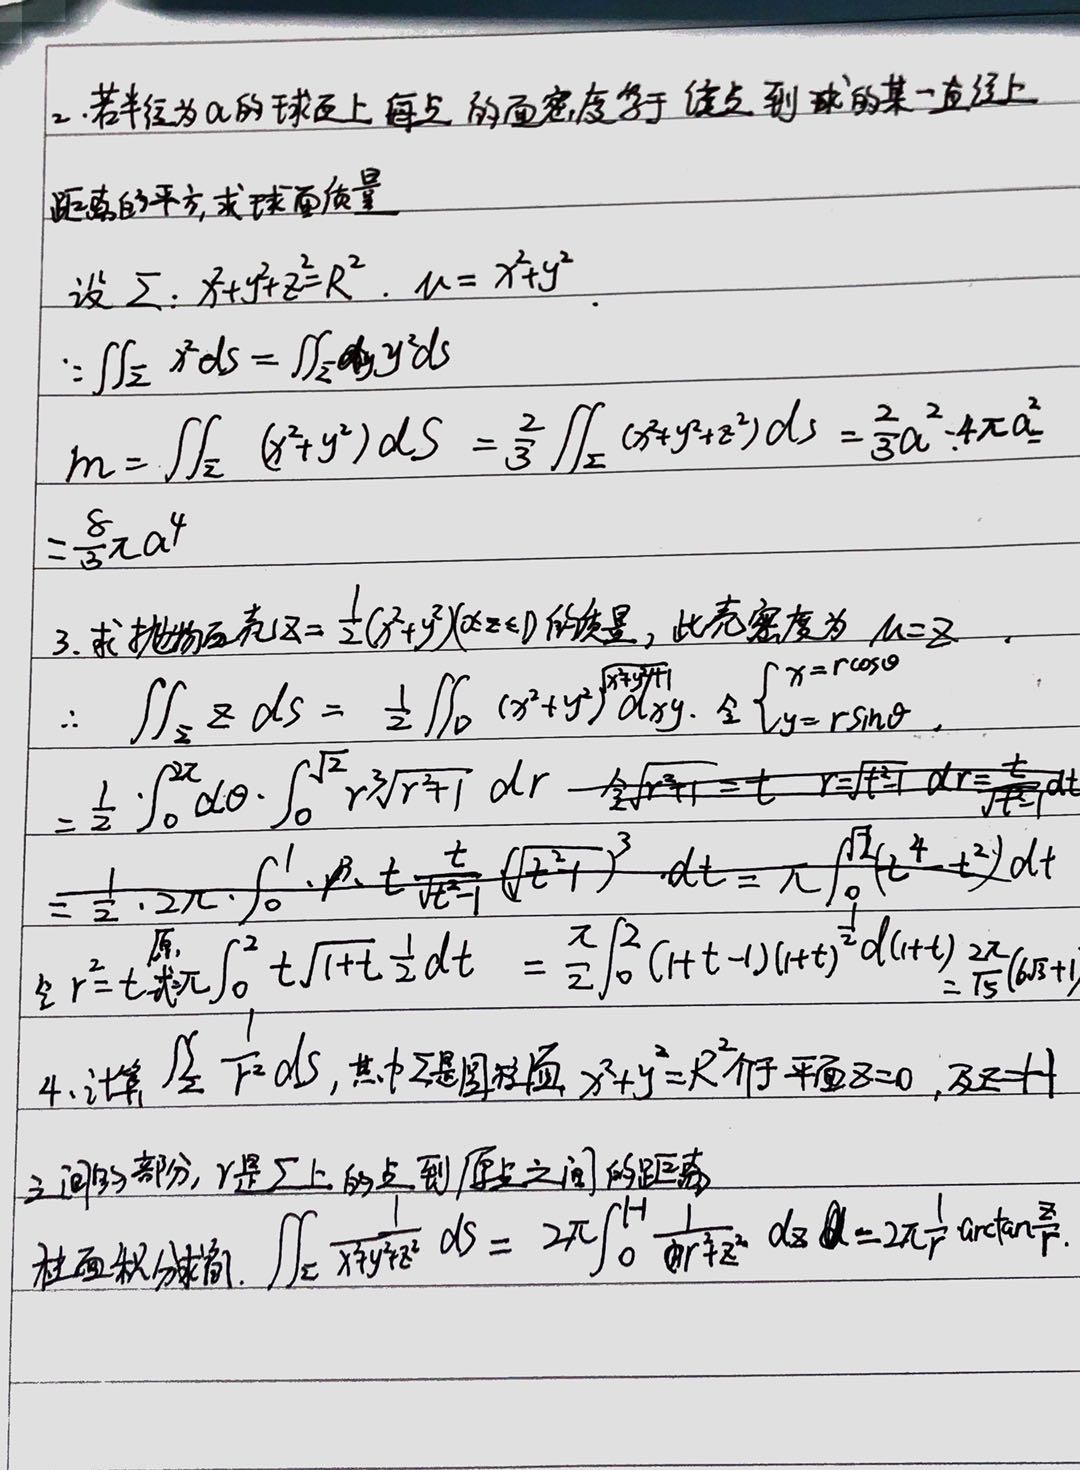 2.若半径为a的球面上每点的面密度等于该点到球的某一直径上
距离的平方,求球面质量
设 Σ: x²+y²+z²=R². μ= x²+y²
∵∬_Σ x²ds = ∬_Σ y²ds
m = ∬_Σ (x²+y²)dS = 2/3 ∬_Σ (x²+y²+z²)ds = 2/3 a²·4πa²
= 8/3 πa⁴
3. 求抛物面壳z=1/2(x²+y²)(0≤z≤1)的质量, 此壳密度为 μ=z.
∴ ∬_Σ z ds = 1/2 ∬_D (x²+y²)√(x²+y²+1) dxy. 令 { x=rcosθ y=rsinθ,
= 1/2·∫₀^2π dθ·∫₀^√2 r³√(r²+1) dr 令√(r²+1)=t r=√(t²-1) dr=t/√(t²-1) dt
= 1/2·2π·∫₀^1 · t t/√(t²-1) (√(t²-1))³ ·dt = π∫₀^√2 (t⁴-t²)dt
令 r²=t 原式=π∫₀² t√(1+t) 1/2 dt = π/2 ∫₀² (1+t-1)(1+t)^(1/2) d(1+t) = 2π/15 (6√3+1)
4.计算 ∬_Σ 1/r² ds, 其中Σ是圆柱面 x²+y²=R²介于平面z=0,及z=H
之间的部分, r是Σ上的点到原点之间的距离
柱面积分 ∬_Σ 1/(x²+y²+z²) ds = 2π∫₀^H 1/(r²+z²) dz = 2π 1/r arctan z/r.